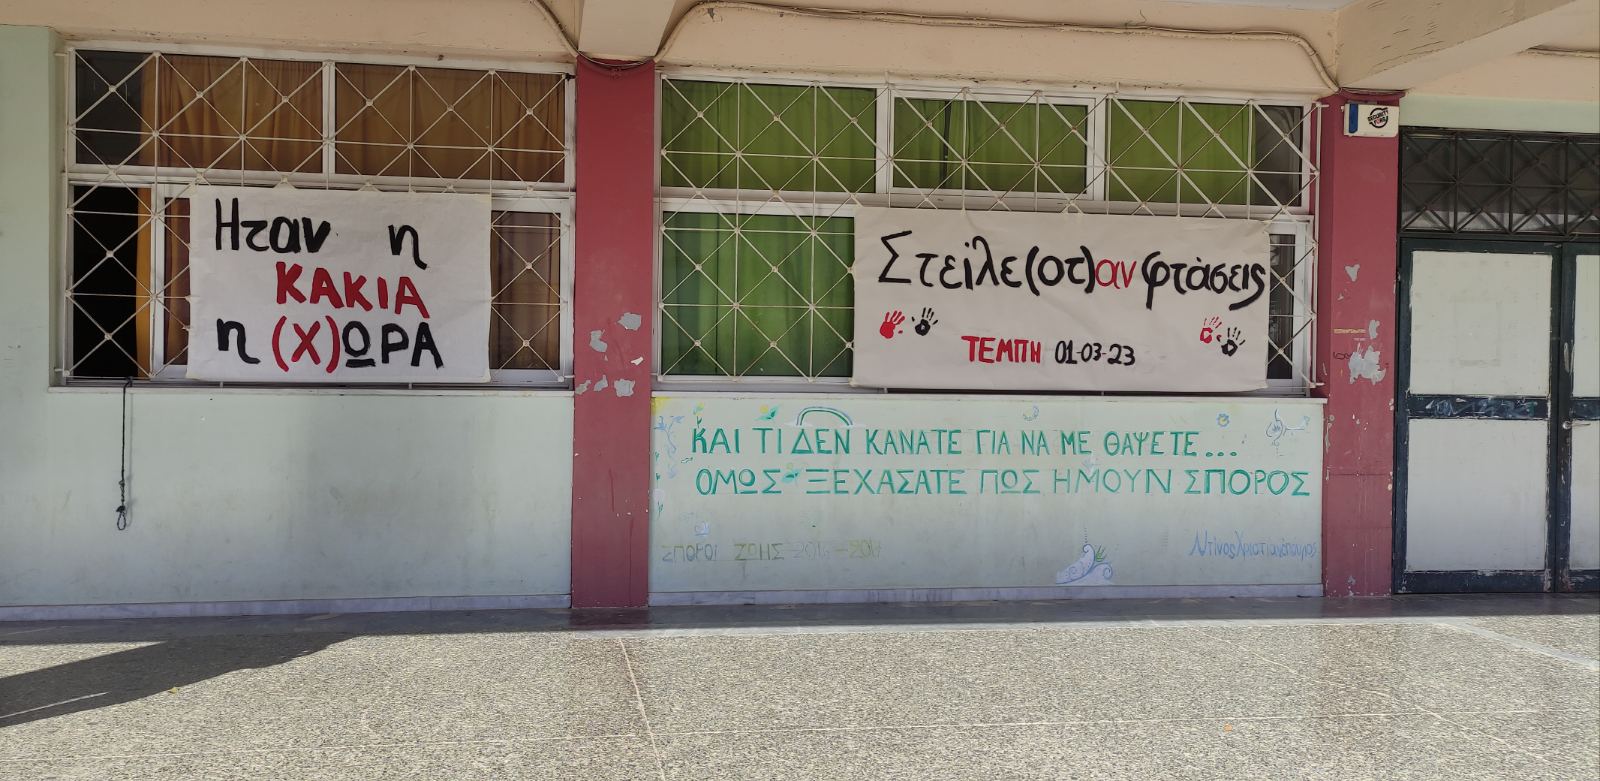 Ηταν η
ΚΑΚΙΑ
η (Χ)ΩΡΑ
Στείλε(οτ)αν φτάσεις
ΤΕΜΠΗ 01-03-23
ΚΑΙ ΤΙ ΔΕΝ ΚΑΝΑΤΕ ΓΙΑ ΝΑ ΜΕ ΘΑΨΕΤΕ...
ΟΜΩΣ ΞΕΧΑΣΑΤΕ ΠΩΣ ΗΜΟΥΝ ΣΠΟΡΟΣ
ΣΠΟΡΟΙ ΖΩΗΣ
Ντίνος Χριστιανόπουλος
SECURITY